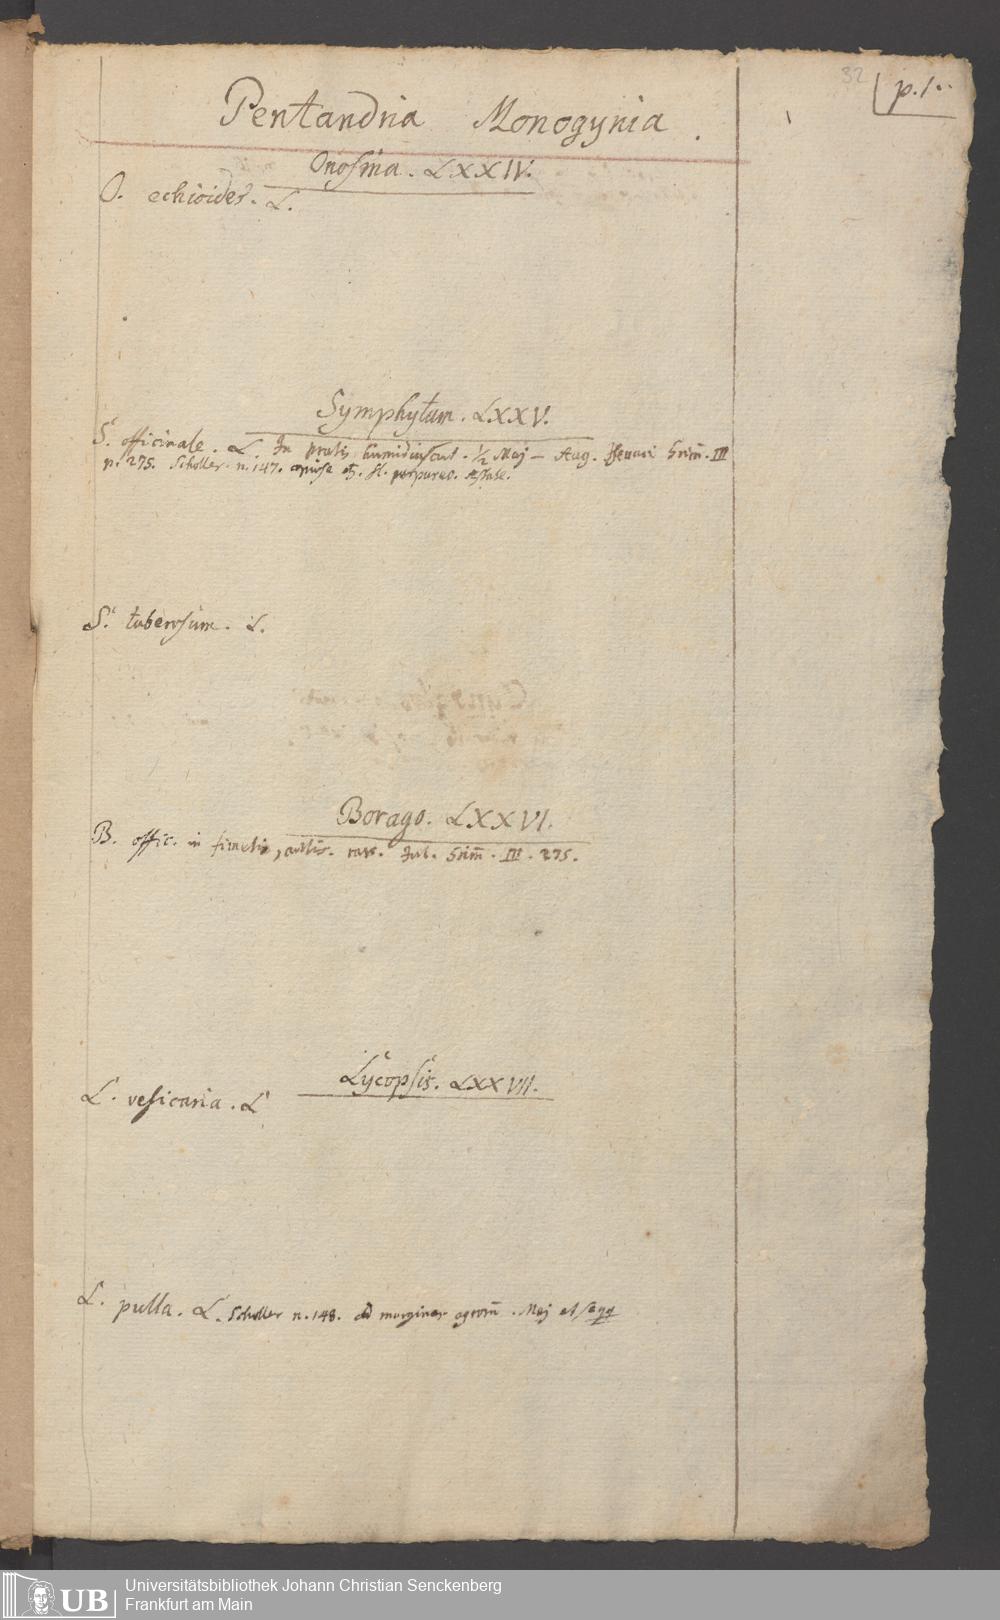 32
p. 1..
Pentandria Monogynia.
Onosma. LXXIV.
O. echioides. L.
Symphytum. LXXV.
S. officinale. L. In pratis humidiuscul. 1/2 Maj — Aug. III
p. 275. Scholler. n. 147. copiose et. fl. purpureo. Æstate.
S. tuberosum. L.
Borago. LXXVI.
B. offic. in fimetis, rar. Jul. III. 275.
Lycopsis. LXXVII.
L. vesicaria. L
L. pulla. L. Scholler n. 148. ad margines agrorū. Maj et seqq
UB
Universitätsbibliothek Johann Christian Senckenberg
Frankfurt am Main